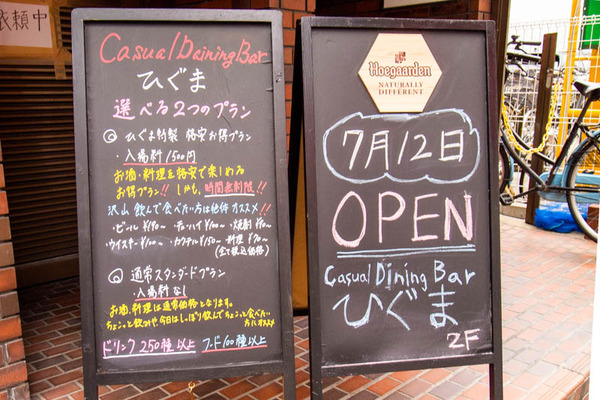 依頼中
Casual Daining Bar
ひぐま
選べる2つのプラン
ひぐま特製 格安お得プラン
・入場料/500円
お酒・料理を格安で楽しめる
お得プラン!! しかも、時間無制限!!
沢山飲んで食べたい方は絶体オススメ!!
・ビール¥180〜 ・チューハイ¥100〜 ・焼酎¥90〜
・ウイスキー¥100〜 ・カクテル¥150〜 ・料理¥70〜
(全て税込価格)
通常スタンダードプラン
・入場料なし
お酒、料理は通常価格となります。
ちょこっと飲みや今日はしっぽり飲んでちょこっと食べたい
方にオススメ
ドリンク250種以上 フード100種以上
Hoegaarden
NATURALLY
DIFFERENT
7月12日
OPEN
Casual Dining Bar
ひぐま
2F